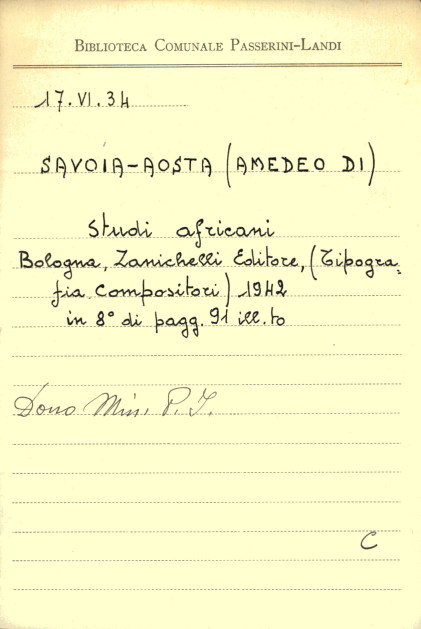 BIBLIOTECA COMUNALE PASSERINI-LANDI
17.VI.34
SAVOIA-AOSTA (AMEDEO DI)
Studi africani
Bologna, Zanichelli Editore, (Tipogra=
fia Compositori) 1942
in 8° di pagg. 91 ill.to
Dono Min. P. I.
C